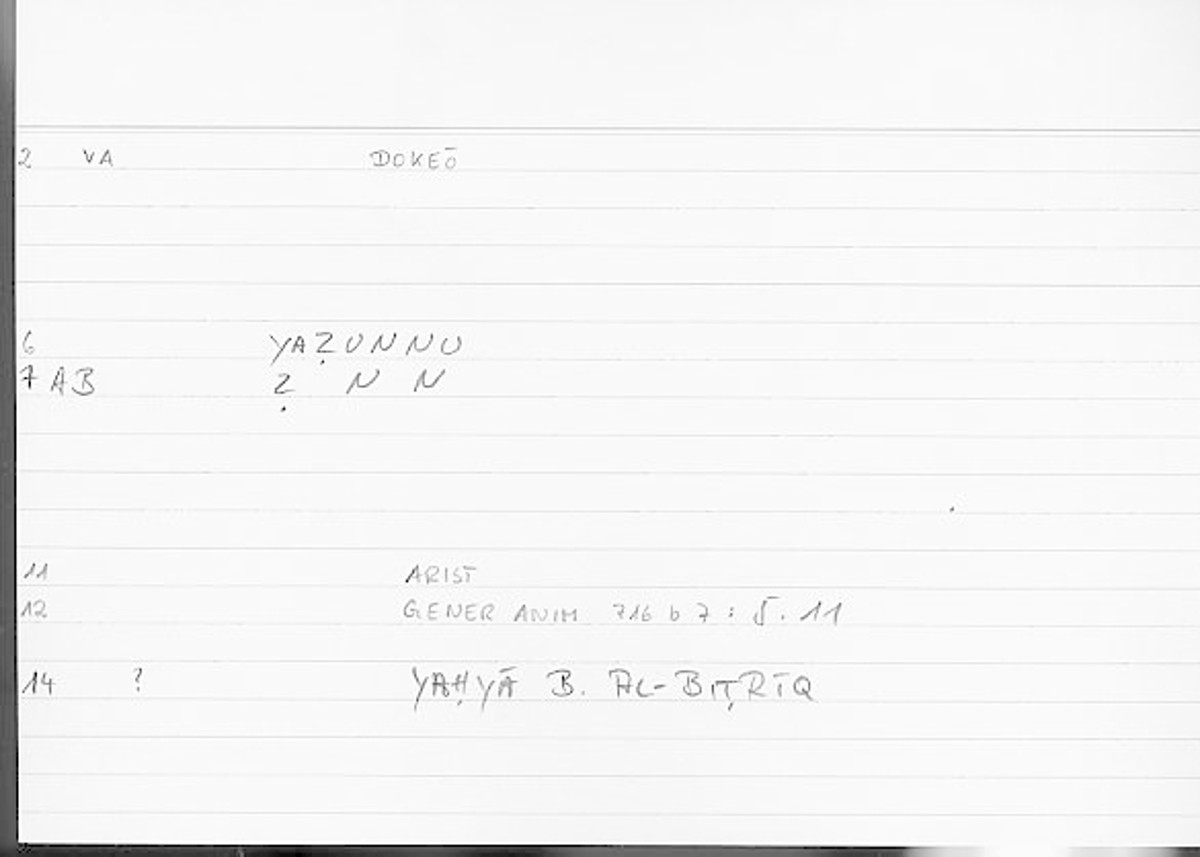 2 VA DOKEŌ
6 YAẒUNNU
7 AB Ẓ N N
11 ARIST
12 GENER ANIM 716 b 7 : 5. 11
14 ? YAḤYĀ B. AL-BIṬRĪQ